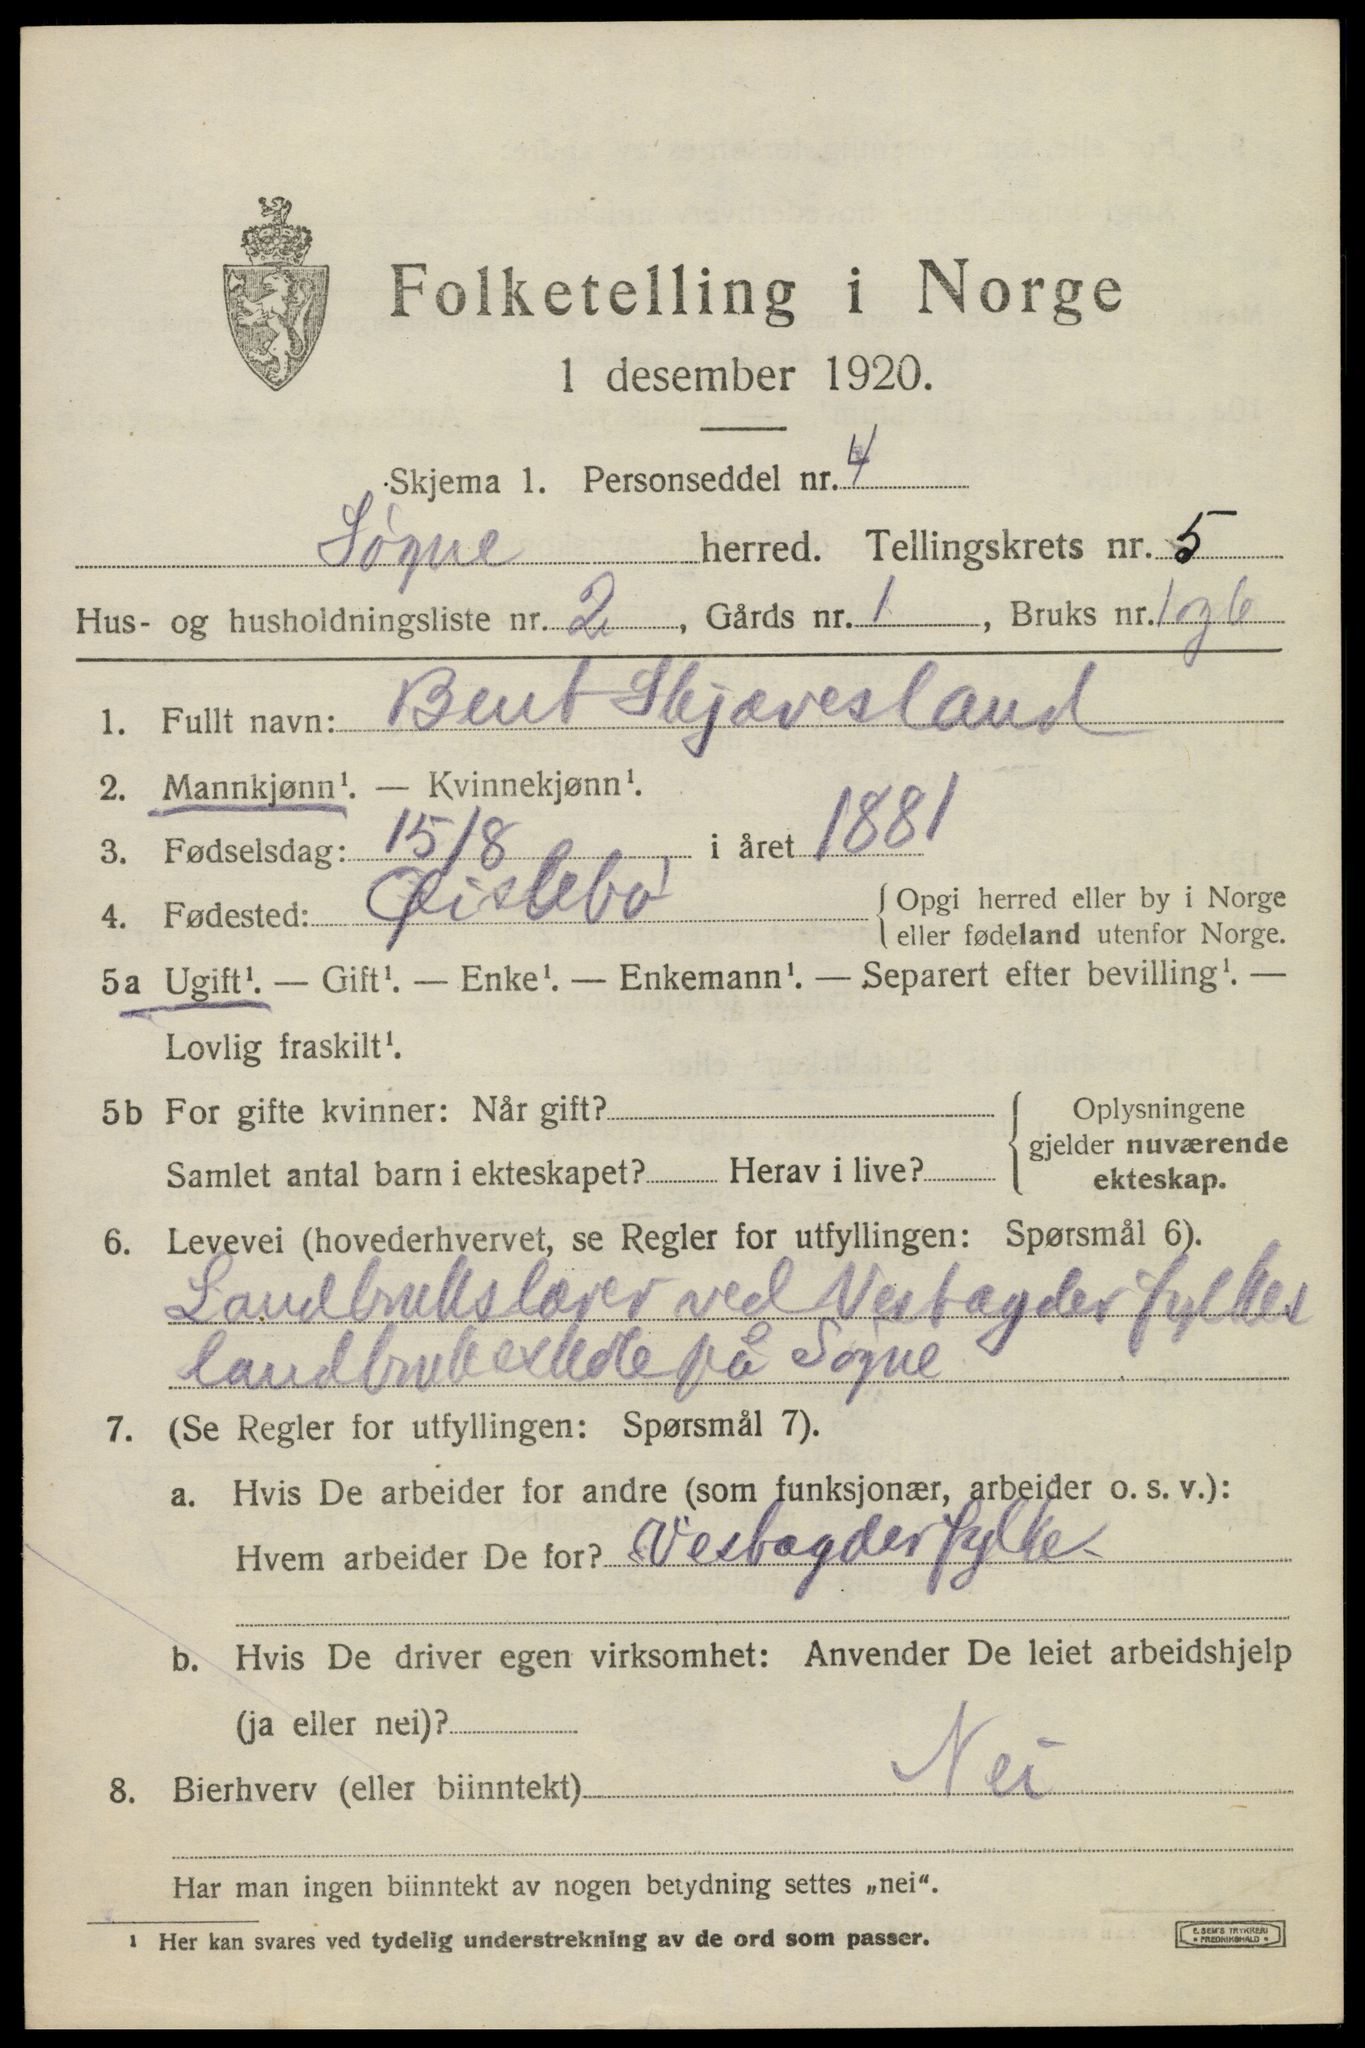 Folketelling i Norge
1 desember 1920.
Skjema 1. Personseddel nr. 4
Søgne herred. Tellingskrets nr. 5
Hus- og husholdningsliste nr. 2, Gårds nr. 1, Bruks nr. 1 og 6
1. Fullt navn: Bent Skjævesland
2. Mannkjønn¹. — Kvinnekjønn¹.
3. Fødselsdag: 15/8 i året 1881
4. Fødested: Øislebø { Opgi herred eller by i Norge
eller fødeland utenfor Norge.
5a Ugift¹. — Gift¹. — Enke¹. — Enkemann¹. — Separert efter bevilling¹. —
Lovlig fraskilt¹.
5b For gifte kvinner: Når gift? { Oplysningene
gjelder nuværende
Samlet antal barn i ekteskapet? Herav i live? ekteskap.
6. Levevei (hovederhvervet, se Regler for utfyllingen: Spørsmål 6).
Landbrukslærer ved Vestagder fylkes
landbruksskole på Søgne
7. (Se Regler for utfyllingen: Spørsmål 7).
a. Hvis De arbeider for andre (som funksjonær, arbeider o. s. v.):
Hvem arbeider De for? Vestagder fylke
b. Hvis De driver egen virksomhet: Anvender De leiet arbeidshjelp
(ja eller nei)?
8. Bierhverv (eller biinntekt) Nei
Har man ingen biinntekt av nogen betydning settes „nei“.
¹ Her kan svares ved tydelig understrekning av de ord som passer.
E. SEM'S TRYKKERI
FREDRIKSHALD